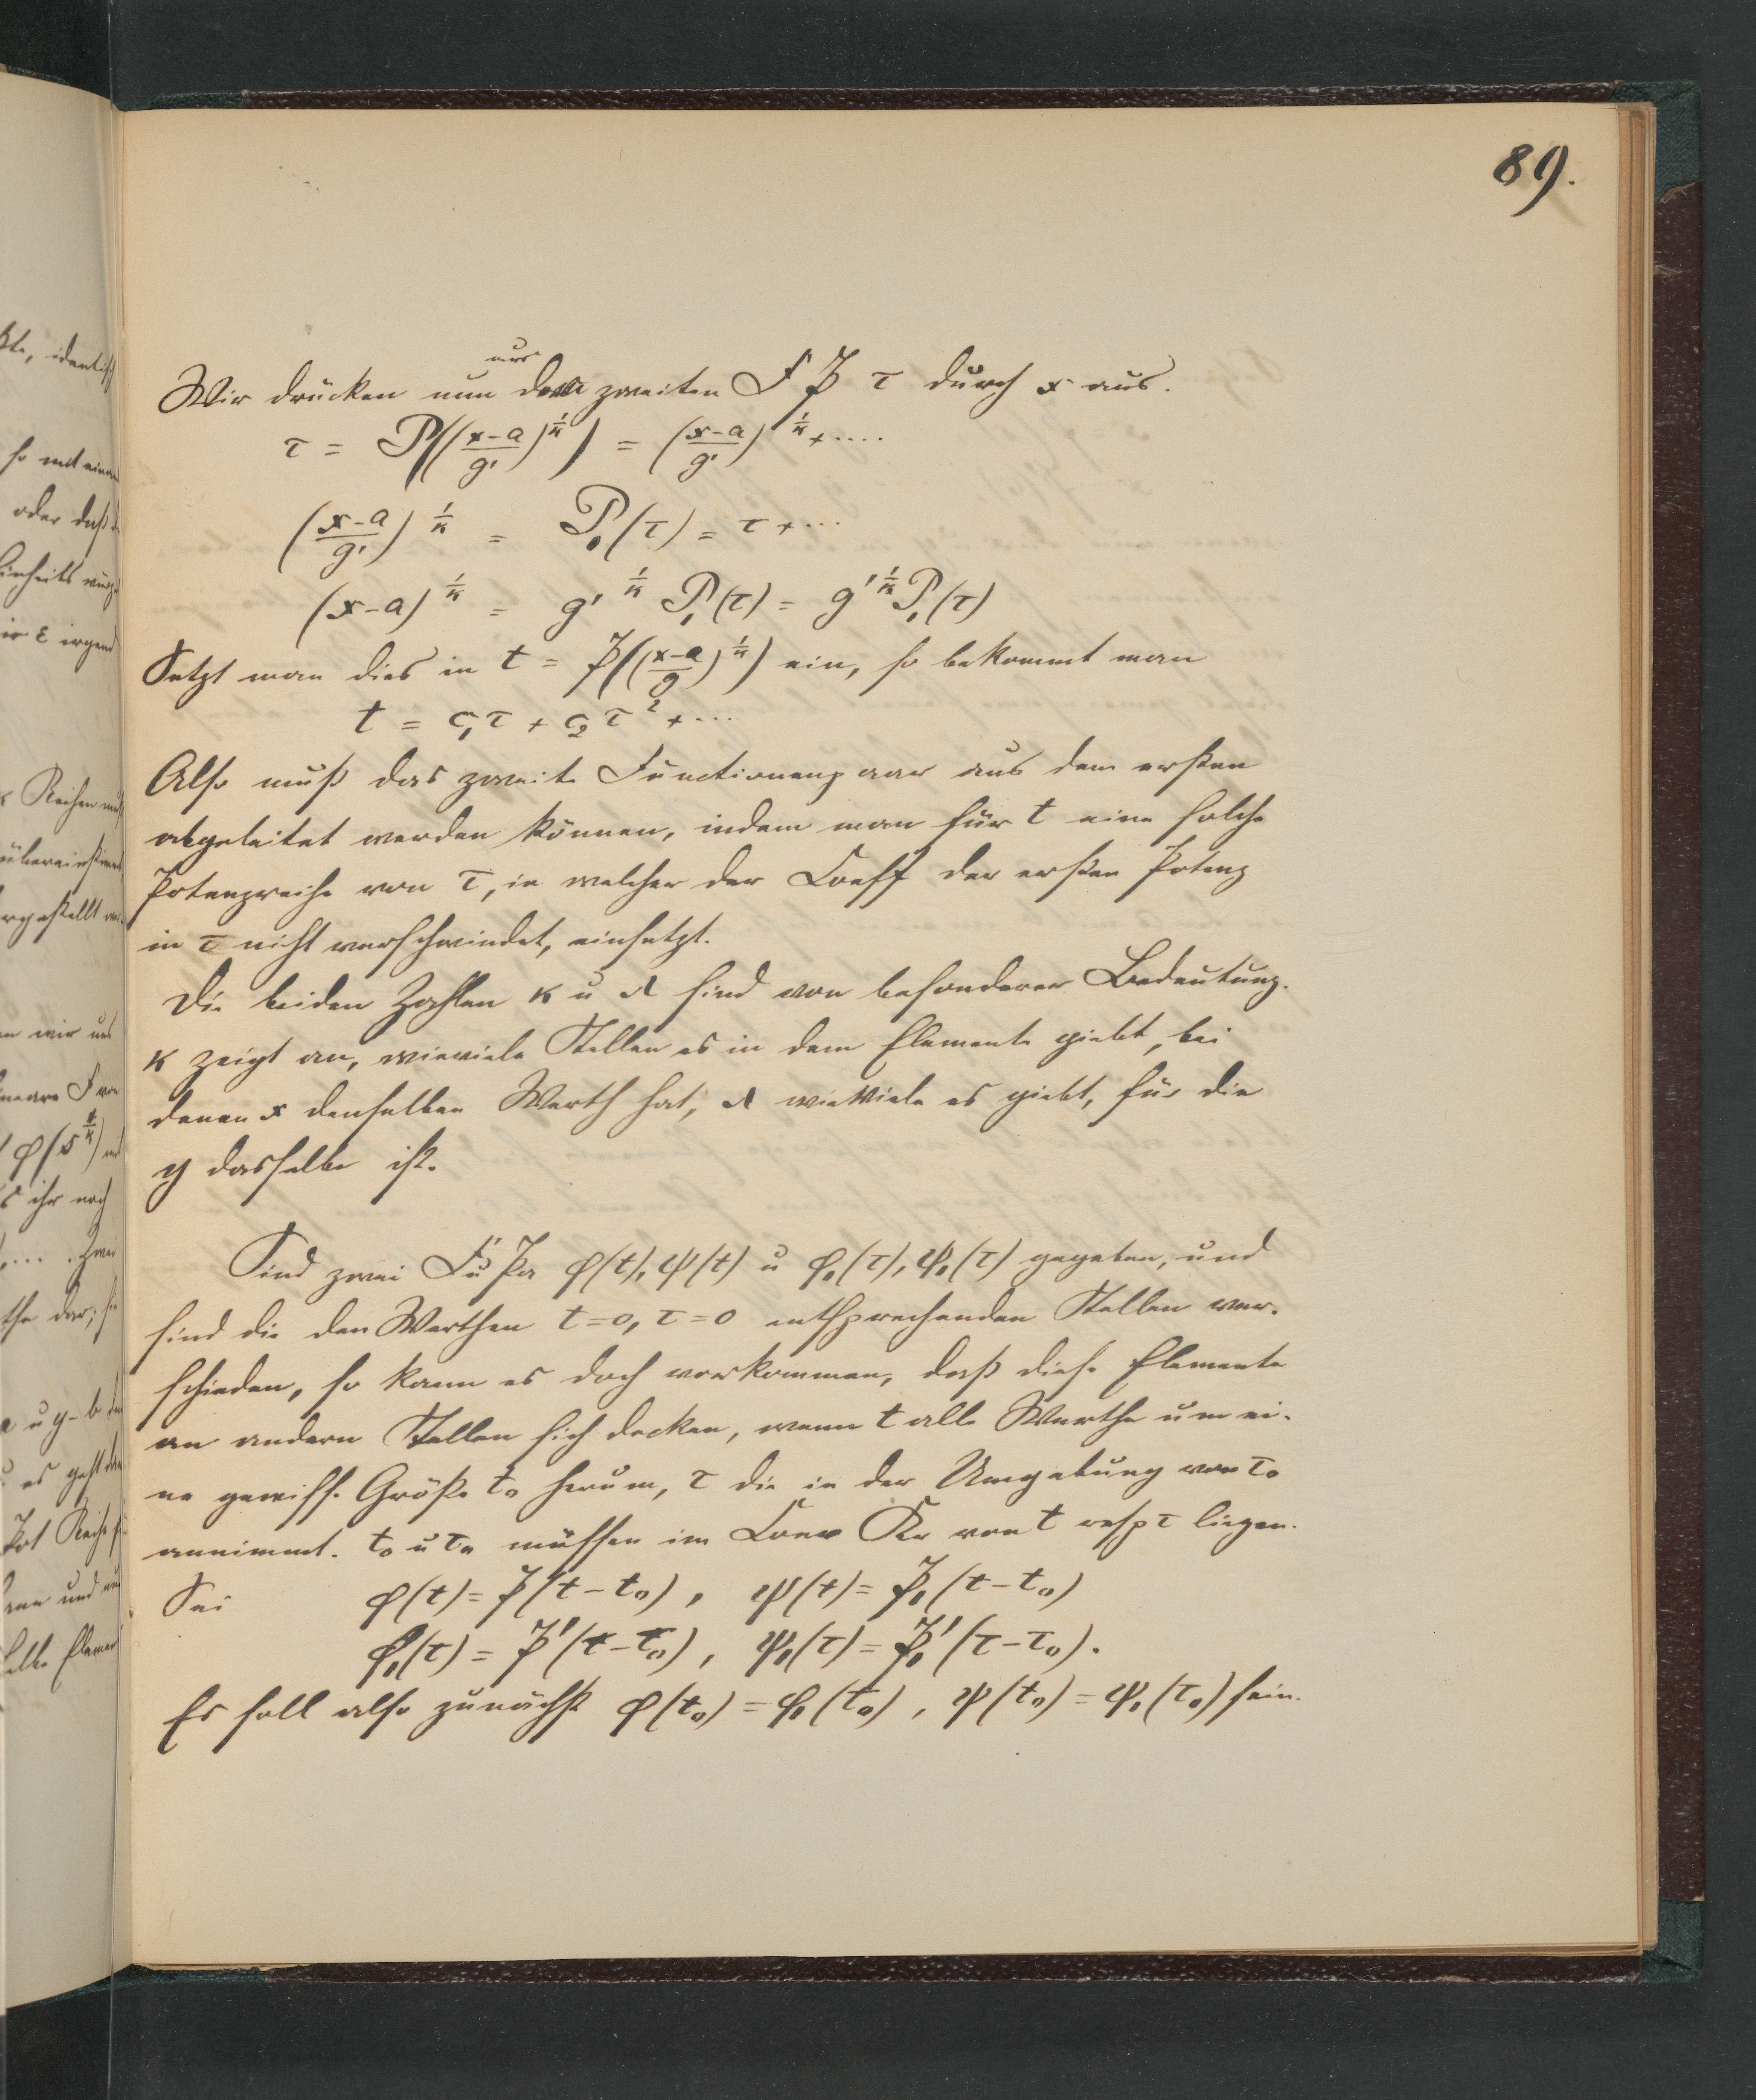 89.
aus
Wir drücken nun dem zweiten F P τ durch x aus.
τ = P((x-a/g')^1/κ) = (x-a/g')^1/κ + ....
(x-a/g')^1/κ = P₁(τ) = τ + ...
(x-a)^1/κ = g'^1/κ P₁(τ) = g'^1/κ P₁(τ)
Setzt man dies in t = P((x-a/g)^1/κ) ein, so bekommt man
t = c₁τ + c₂τ² + ...
Also muß das zweite Functionenpaar aus dem ersten
abgeleitet werden können, indem man für t eine solche
Potenzreihe von τ, in welcher der Coeff der ersten Potenz
in τ nicht verschwindet, einsetzt.
Die beiden Zahlen κ u λ sind von besonderer Bedeutung.
κ zeigt an, wieviele Stellen es in dem Elemente giebt, bei
denen x denselben Werth hat, λ wieviele es giebt, für die
y dasselbe ist.
Sind zwei Fu Pa φ(t), ψ(t) u φ₁(τ), ψ₁(τ) gegeben, und
sind die den Werthen t=0, τ=0 entsprechenden Stellen ver-
schieden, so kann es doch vorkommen, daß diese Elemente
an andern Stellen sich decken, wenn t alle Werthe um ei-
ne gewisse Größe t₀ herum, τ die in der Umgebung von τ₀
annimmt. t₀ u τ₀ müssen im Conv Kr von t resp τ liegen.
Sei φ(t) = P(t-t₀), ψ(t) = P₁(t-t₀)
φ₁(τ) = P'(τ-τ₀), ψ₁(τ) = P₁'(τ-τ₀).
Es soll also zunächst φ(t₀) = φ₁(τ₀), ψ(t₀) = ψ₁(τ₀) sein.